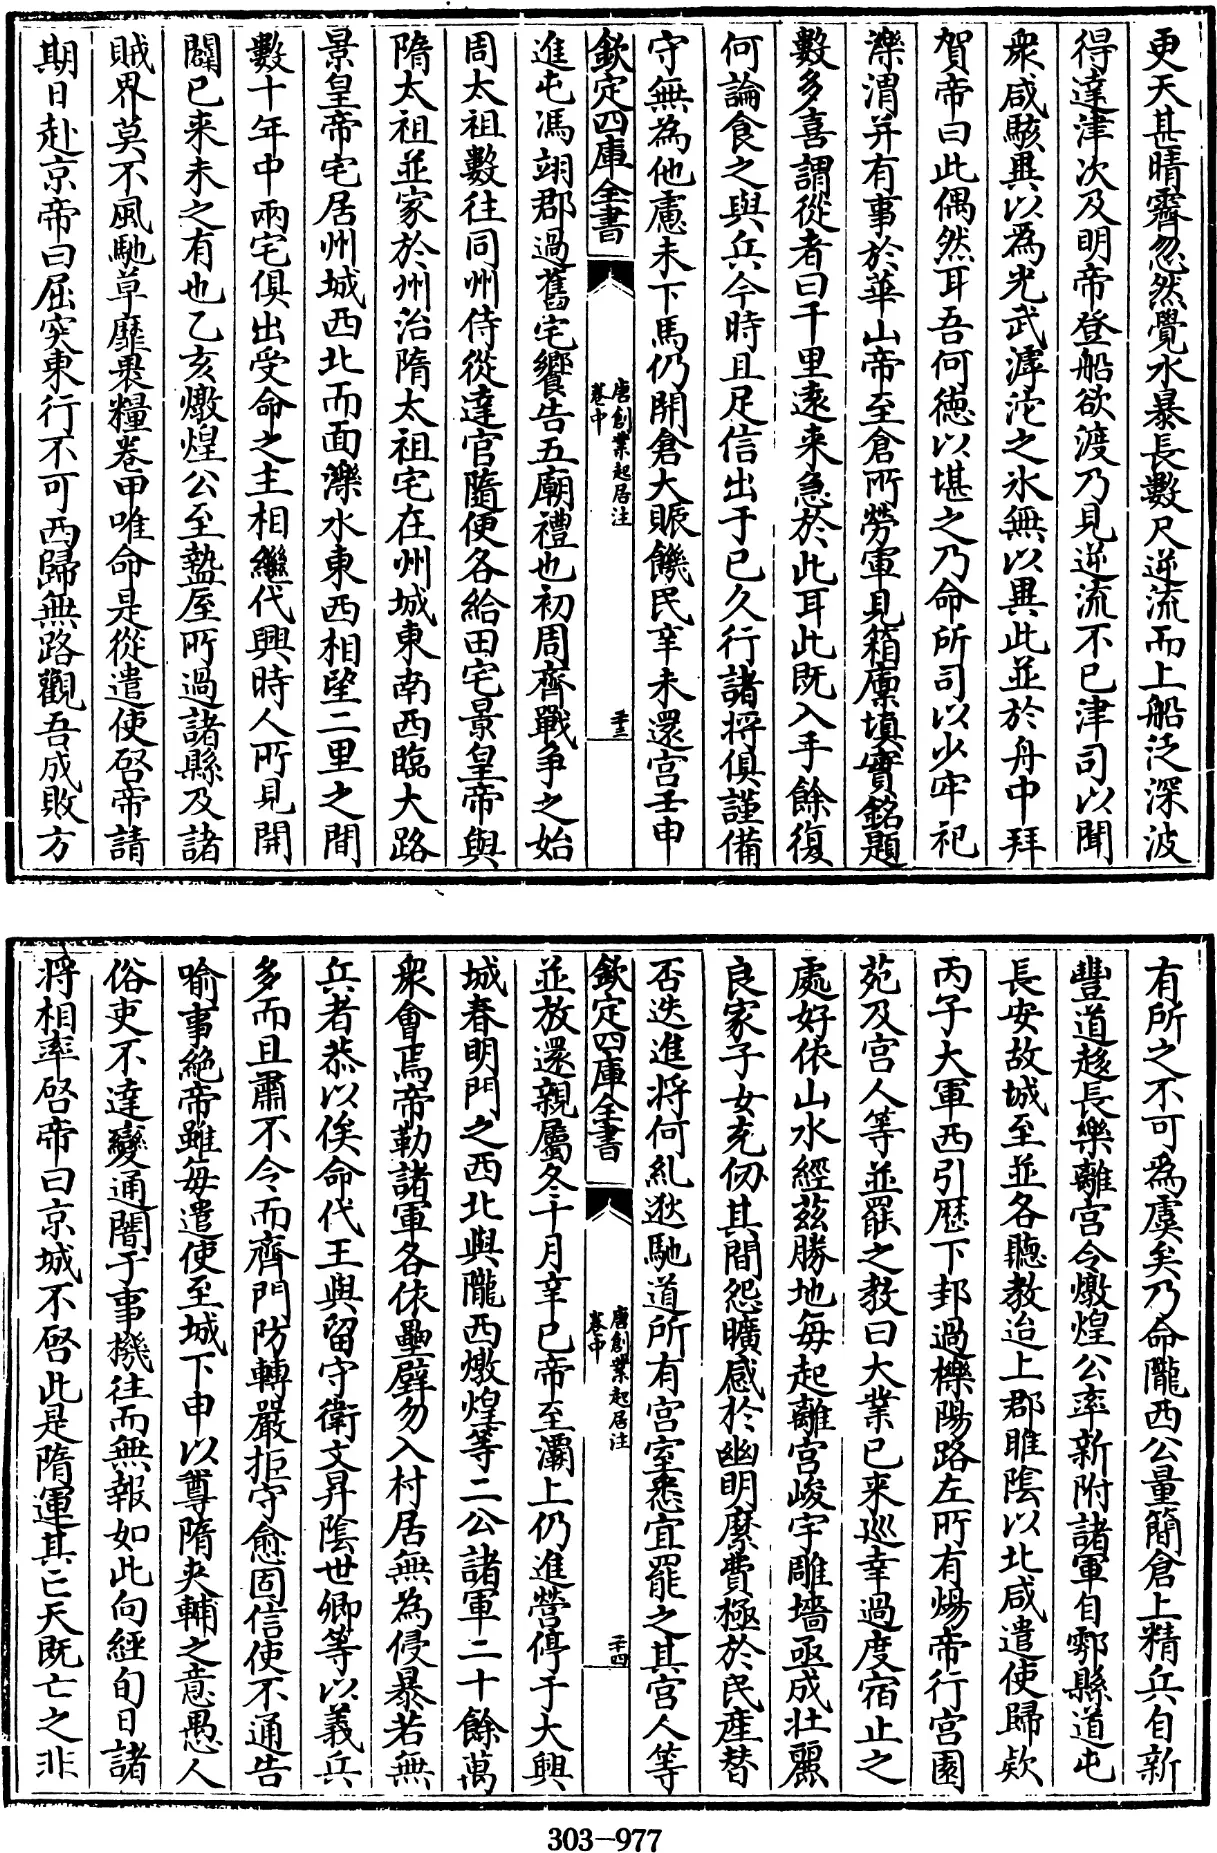 更天甚晴霽忽然覺水暴長數尺逆流而上船泛深波
得達津次及明帝登船欲渡乃見逆流不已津司以聞
衆咸駭異以為光武滹沱之氷無以異此並於舟中拜
賀帝曰此偶然耳吾何徳以堪之乃命所司以少牢祀
濼渭并有事於華山帝至倉所勞軍見箱廩填實銘題
數多喜謂從者曰千里遠来急於此耳此既入手餘復
何論食之與兵今時且足信出于已久行諸将俱謹備
守無為他慮未下馬仍開倉大賑饑民辛未還宫壬申
欽定四庫全書
唐創業起居注
卷中
二十三
進屯馮翊郡過舊宅饗告五廟禮也初周齊戰争之始
周太祖數往同州侍從達官隨便各給田宅景皇帝與
隋太祖並家於州治隋太祖宅在州城東南西臨大路
景皇帝宅居州城西北而面濼水東西相望二里之間
數十年中兩宅俱出受命之主相繼代興時人所見開
闢已来未之有也乙亥燉煌公至盩厔所過諸縣及諸
賊界莫不風馳草靡裹糧卷甲唯命是從遣使啓帝請
期日赴京帝曰屈突東行不可西歸無路觀吾成敗方
有所之不可為虞矣乃命隴西公量簡倉上精兵自新
豐道趍長樂離宫令燉煌公率新附諸軍自鄠縣道屯
長安故城至並各聽教迨上郡雎陰以北咸遣使歸欵
丙子大軍西引歴下邽過櫟陽路左所有煬帝行宫園
苑及宫人等並罷之教曰大業已来巡幸過度宿止之
處好依山水經兹勝地每起離宫峻宇雕墻亟成壮麗
良家子女充仞其間怨曠感於幽明糜費極於民産替
否迭進将何糺逖馳道所有宫室悉宜罷之其宫人等
欽定四庫全書
唐創業起居注
卷中
二十四
並放還親屬冬十月辛巳帝至灞上仍進營停于大興
城春明門之西北與隴西燉煌等二公諸軍二十餘萬
衆會焉帝勒諸軍各依壘壁勿入村居無為侵暴若無
兵者恭以俟命代王與留守衛文昇陰世卿等以義兵
多而且肅不令而齊門防轉嚴拒守愈固信使不通告
喻事絶帝雖每遣使至城下申以尊隋夾輔之意愚人
俗吏不達變通闇于事機往而無報如此向經旬日諸
将相率啓帝曰京城不啓此是隋運其亡天既亡之非
303-977